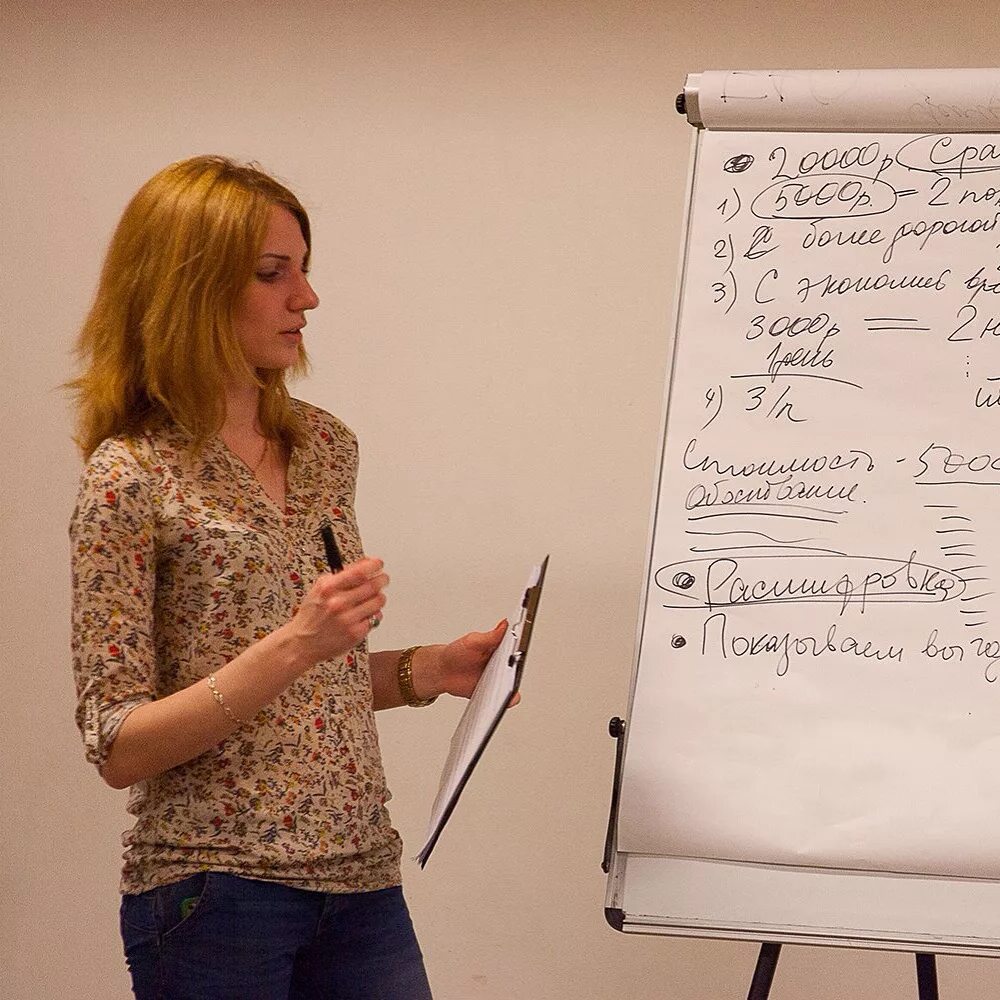 20000р Сра
1) 5000р. = 2 по
2) более дорогой
3) С экономией вре
3000р = 2 н
1 день
4) З/п
Стоимость - 5000
Расшифровка
Показываем выго